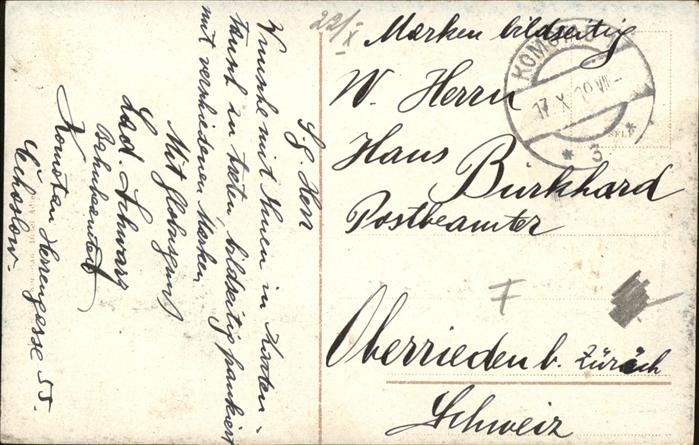 22/X
Marken bildseitig
W. Herrn
Hans Burkhard
Postbeamter
Oberrieden b. Zürich
Schweiz
KOMO
17. X. 20 VIII-
* 3 *
F
Sg. Herr
Wünsche mit Ihnen in Karten-
tausch zu treten bildseitig frankiert
mit verschiedenen Marken
Mit Hochachtung
Lad. Schwarz
Komotau Herrengasse 55.
Čechoslow.